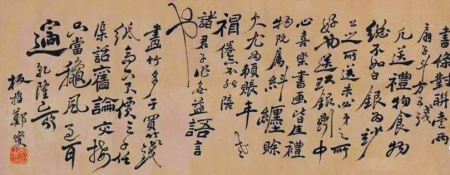 書條對聯壹兩
扇子斗方五錢
凡送禮物食物
總不如白銀為妙
公之所送未必弟之所
好也送現銀則中
心喜樂書畫皆佳禮
物既屬糾纏賒
欠尤為賴賬年老
神倦不能陪
諸君子作無益語言
也
畫竹多于買竹錢
紙高六尺價三千任
渠話舊論交接
只當龝風過耳
邊 乾隆
板橋鄭燮